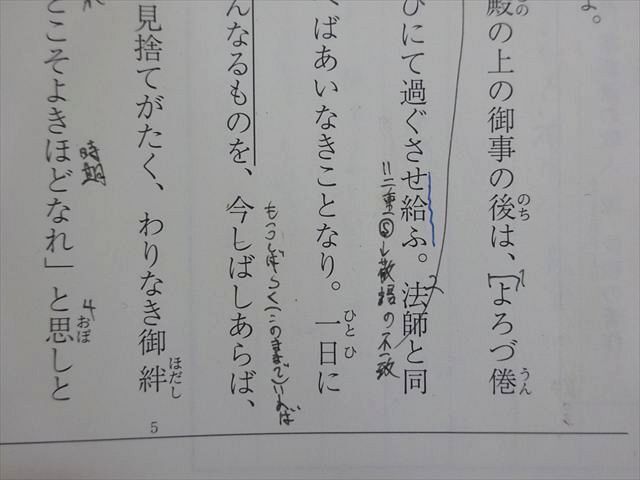 よ。
殿の上の御事の後は、「よろづ倦
の
のち
うん
ひにて過ぐさせ給ふ。法師と同
=二重尊→敬語の不一致
くばあいなきことなり。一日に
ひとひ
もうしばらく(このままで)いれば
んなるものを、今しばしあらば、
見捨てがたく、わりなき御絆
ほだし
5
時期
とこそよきほどなれ」と思しと
4
おぼ